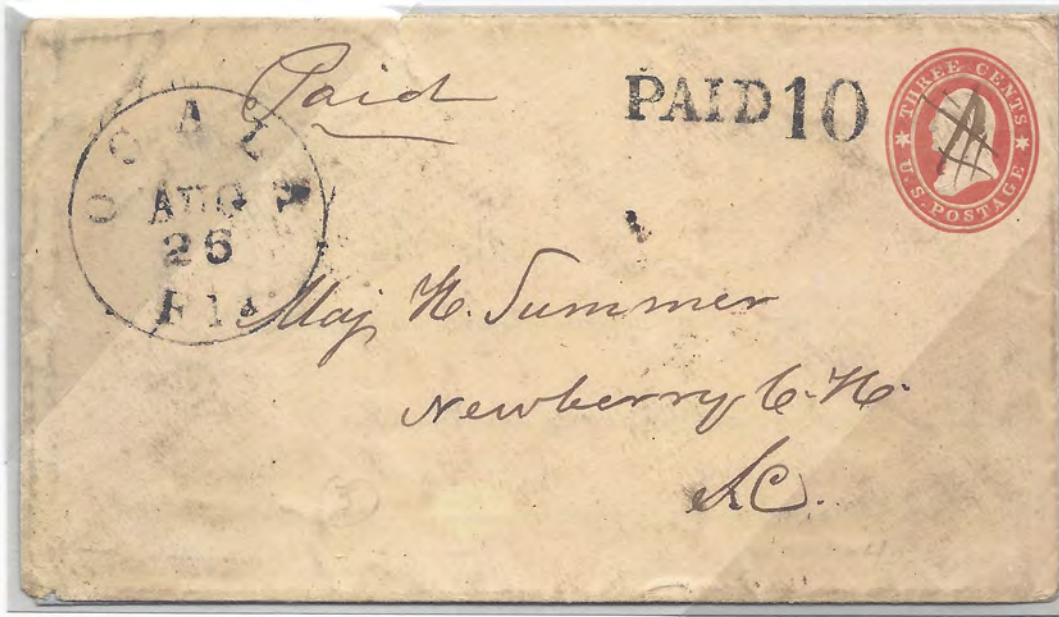 Paid
PAID 10
THREE CENTS
U.S. POSTAGE
OCALA
AUG
26
Fla
Maj H. Summer
Newberry C. H.
S.C.